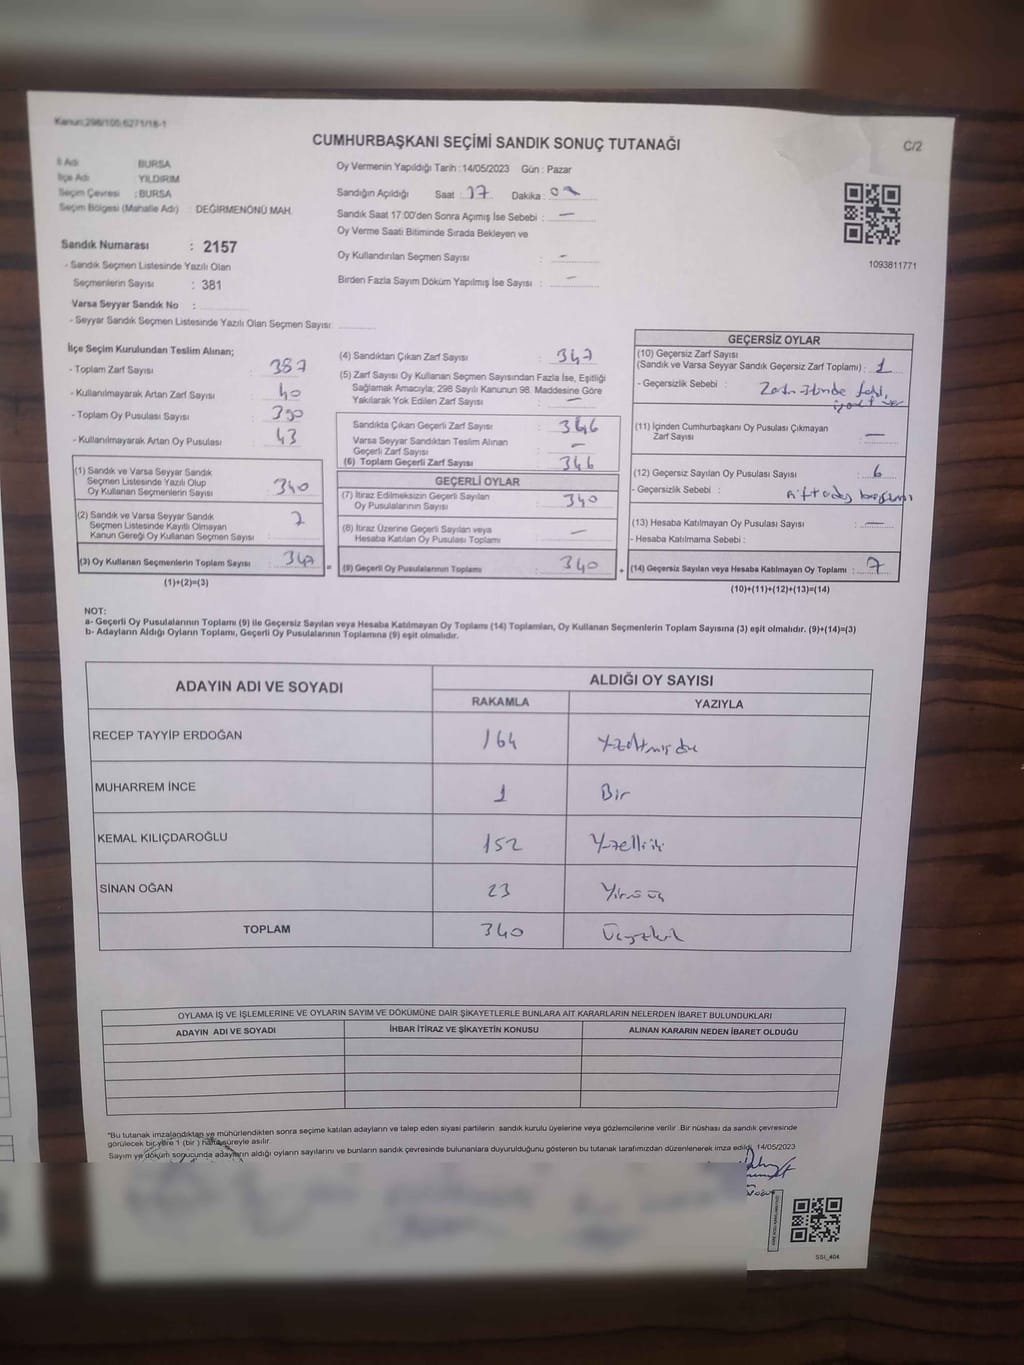 Kanun:298/105,6271/18-1
CUMHURBAŞKANI SEÇİMİ SANDIK SONUÇ TUTANAĞI
C/2
İl Adı BURSA
İlçe Adı YILDIRIM
Seçim Çevresi : BURSA
Seçim Bölgesi (Mahalle Adı) : DEĞİRMENÖNÜ MAH.
Oy Vermenin Yapıldığı Tarih : 14/05/2023 Gün : Pazar
Sandığın Açıldığı Saat : 17 Dakika :
Sandık Saat 17:00'den Sonra Açımış İse Sebebi : —
Oy Verme Saati Bitiminde Sırada Bekleyen ve
Oy Kullandırılan Seçmen Sayısı : -
Birden Fazla Sayım Döküm Yapılmış İse Sayısı : —
1093811771
Sandık Numarası : 2157
- Sandık Seçmen Listesinde Yazılı Olan
Seçmenlerin Sayısı : 381
Varsa Seyyar Sandık No :
- Seyyar Sandık Seçmen Listesinde Yazılı Olan Seçmen Sayısı:
İlçe Seçim Kurulundan Teslim Alınan;
- Toplam Zarf Sayısı : 387
- Kullanılmayarak Artan Zarf Sayısı : 40
- Toplam Oy Pusulası Sayısı : 390
- Kullanılmayarak Artan Oy Pusulası : 43
(1) Sandık ve Varsa Seyyar Sandık
Seçmen Listesinde Yazılı Olup
Oy Kullanan Seçmenlerin Sayısı : 340
(2) Sandık ve Varsa Seyyar Sandık
Seçmen Listesinde Kayıtlı Olmayan
Kanun Gereği Oy Kullanan Seçmen Sayısı : 7
(3) Oy Kullanan Seçmenlerin Toplam Sayısı : 347
(1)+(2)=(3)
(4) Sandıktan Çıkan Zarf Sayısı : 347
(5) Zarf Sayısı Oy Kullanan Seçmen Sayısından Fazla İse, Eşitliği
Sağlamak Amacıyla; 298 Sayılı Kanunun 98. Maddesine Göre
Yakılarak Yok Edilen Zarf Sayısı : —
Sandıkta Çıkan Geçerli Zarf Sayısı : 346
Varsa Seyyar Sandıktan Teslim Alınan
Geçerli Zarf Sayısı : —
(6) Toplam Geçerli Zarf Sayısı : 346
GEÇERLİ OYLAR
(7) İtiraz Edilmeksizin Geçerli Sayılan
Oy Pusulalarının Sayısı : 340
(8) İtiraz Üzerine Geçerli Sayılan veya
Hesaba Katılan Oy Pusulası Toplamı : —
= (9) Geçerli Oy Pusulalarının Toplamı : 340
GEÇERSİZ OYLAR
(10) Geçersiz Zarf Sayısı
(Sandık ve Varsa Seyyar Sandık Geçersiz Zarf Toplamı) : 1
- Geçersizlik Sebebi :
(11) İçinden Cumhurbaşkanı Oy Pusulası Çıkmayan
Zarf Sayısı : —
(12) Geçersiz Sayılan Oy Pusulası Sayısı : 6
- Geçersizlik Sebebi :
(13) Hesaba Katılmayan Oy Pusulası Sayısı : —
- Hesaba Katılmama Sebebi :
+ (14) Geçersiz Sayılan veya Hesaba Katılmayan Oy Toplamı : 7
(10)+(11)+(12)+(13)=(14)
NOT:
a- Geçerli Oy Pusulalarının Toplamı (9) ile Geçersiz Sayılan veya Hesaba Katılmayan Oy Toplamı (14) Toplamları, Oy Kullanan Seçmenlerin Toplam Sayısına (3) eşit olmalıdır. (9)+(14)=(3)
b- Adayların Aldığı Oyların Toplamı, Geçerli Oy Pusulalarının Toplamına (9) eşit olmalıdır.
ADAYIN ADI VE SOYADI
ALDIĞI OY SAYISI
RAKAMLA YAZIYLA
RECEP TAYYİP ERDOĞAN 164
MUHARREM İNCE 1 Bir
KEMAL KILIÇDAROĞLU 152 Yüzelliiki
SİNAN OĞAN 23 Yirmiüç
TOPLAM 340 Üçyüzkırk
OYLAMA İŞ VE İŞLEMLERİNE VE OYLARIN SAYIM VE DÖKÜMÜNE DAİR ŞİKAYETLERLE BUNLARA AİT KARARLARIN NELERDEN İBARET BULUNDUKLARI
ADAYIN ADI VE SOYADI İHBAR İTİRAZ VE ŞİKAYETİN KONUSU ALINAN KARARIN NEDEN İBARET OLDUĞU
*Bu tutanak imzalandıktan ve mühürlendikten sonra seçime katılan adayların ve talep eden siyasi partilerin sandık kurulu üyelerine veya gözlemcilerine verilir. Bir nüshası da sandık çevresinde
görülecek bir yere 1 (bir) hafta süreyle asılır.
Sayım ve döküm sonucunda adayların aldığı oyların sayılarını ve bunların sandık çevresinde bulunanlara duyurulduğunu gösteren bu tutanak tarafımızdan düzenlenerek imza edildi. 14/05/2023
SSİ_404